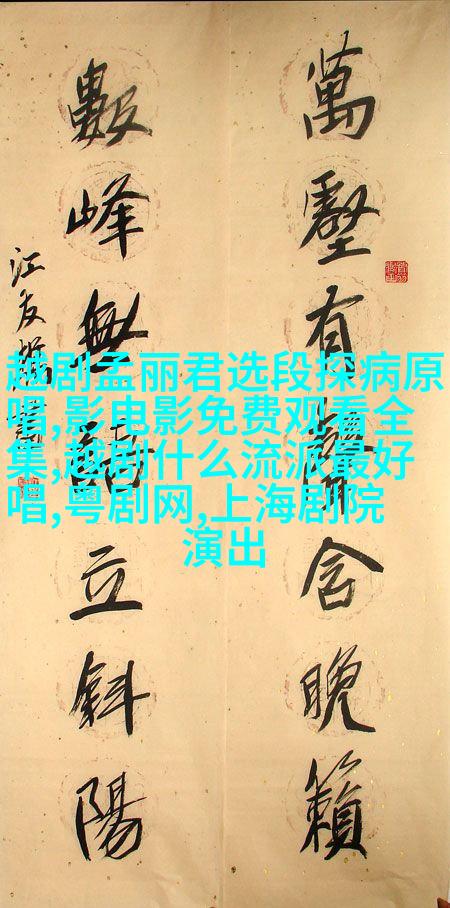 越剧孟丽君选段探病原
唱,影电影免费观看全
集,越剧什么流派最好
唱,粤剧网,上海剧院
演出
萬壑有聲含晚籟
數峰無語立斜陽
江友